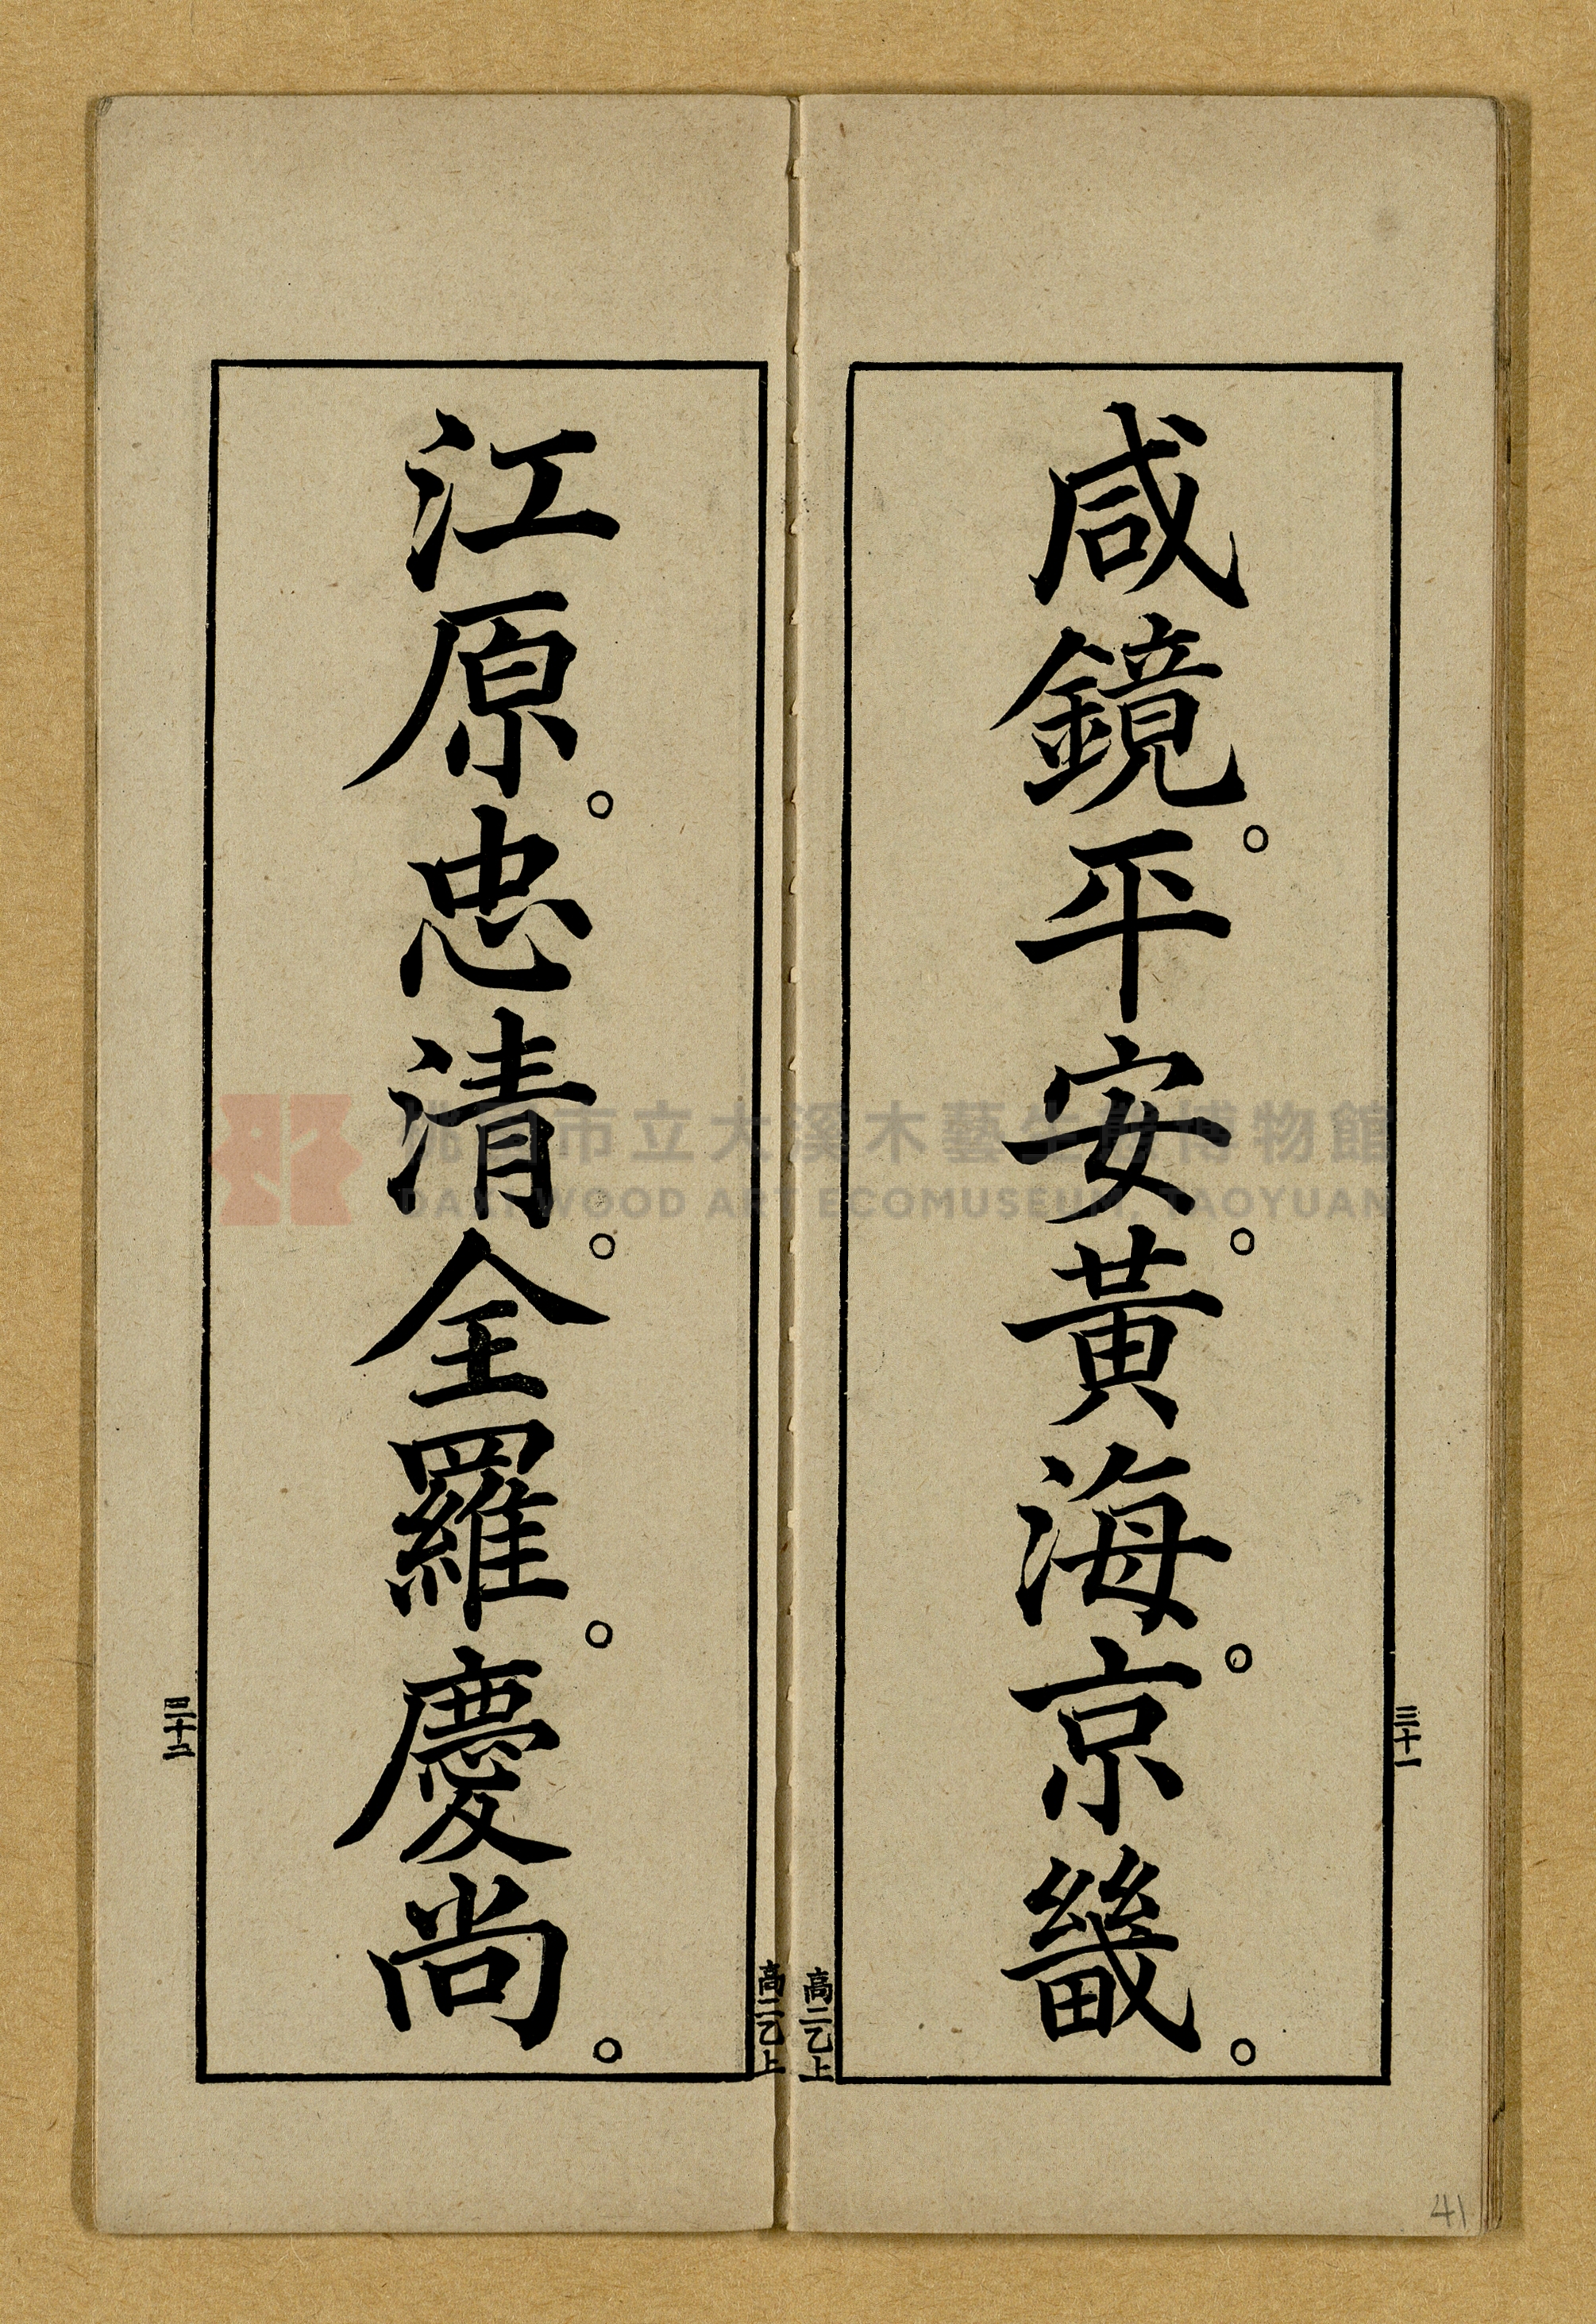 咸鏡。平安。黃海。京畿。
三十一
高二乙上
江原。忠清。全羅。慶尚。
三十二
高二乙上
桃園市立大溪木藝生態博物館
DAXI WOOD ART ECOMUSEUM, TAOYUAN
41